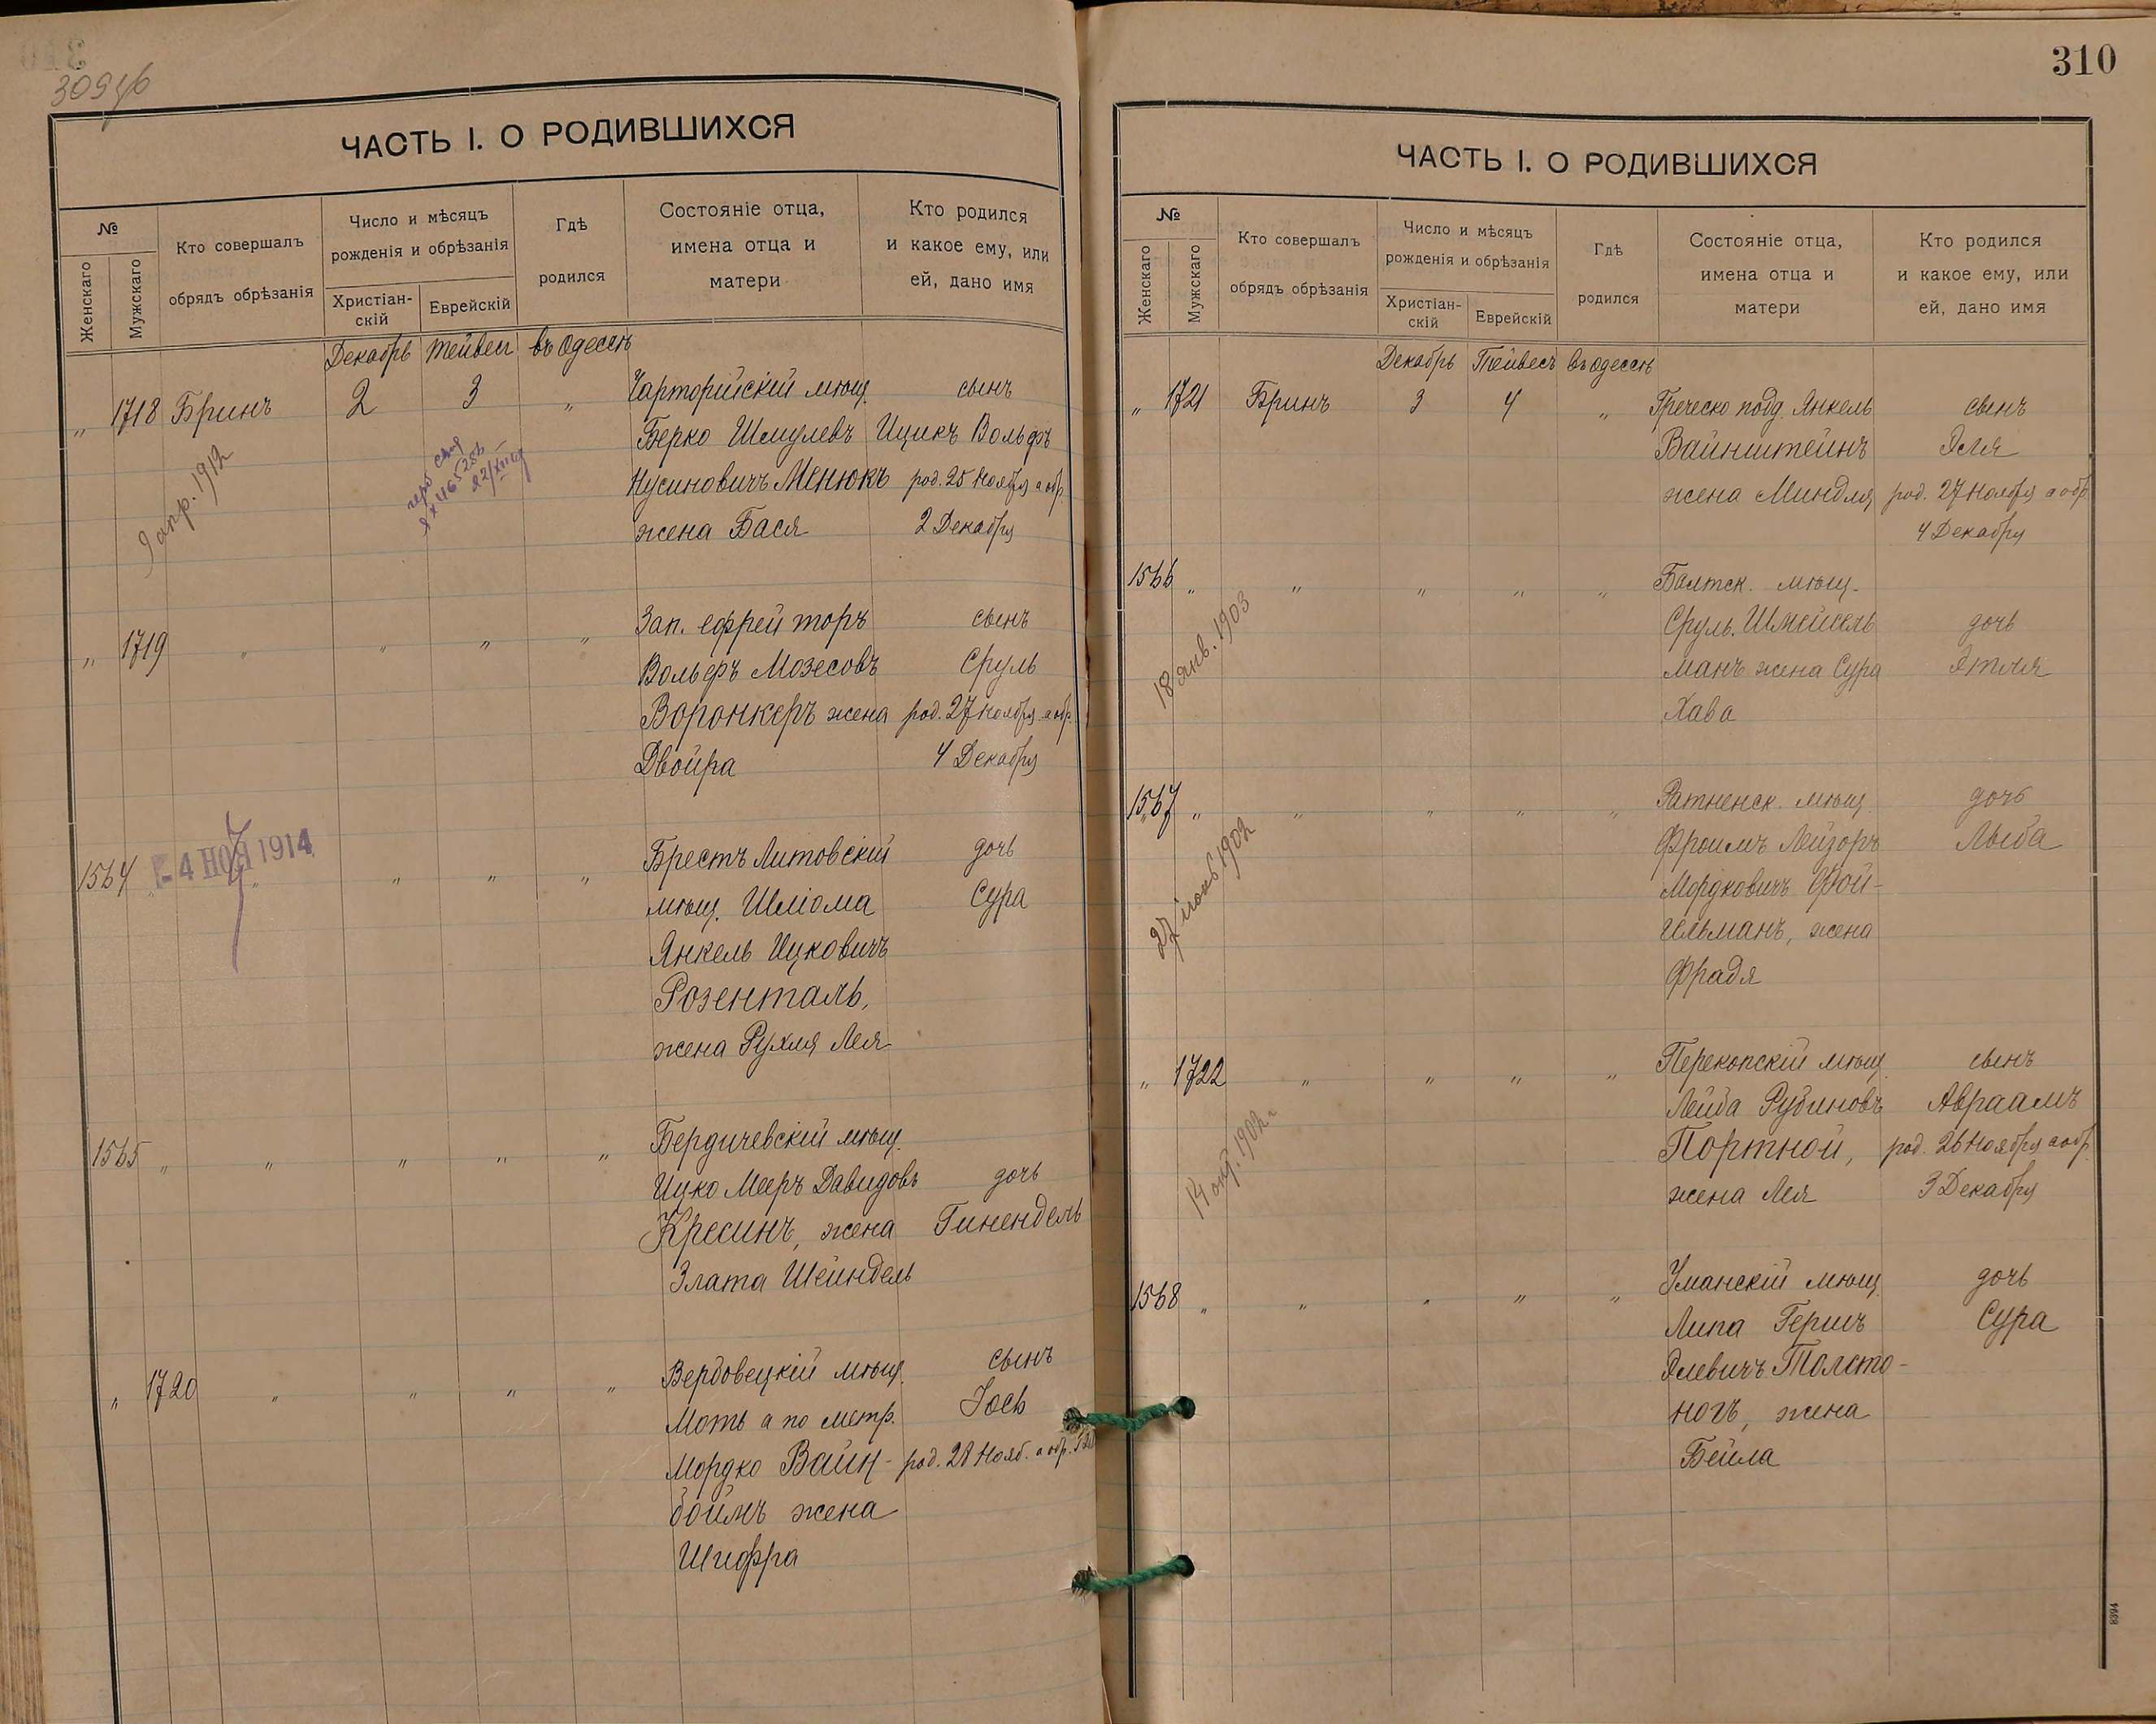 309 об
ЧАСТЬ I. О РОДИВШИХСЯ
№
Женскаго
Мужскаго
Кто совершалъ
обрядъ обрѣзанія
Число и мѣсяцъ
рожденія и обрѣзанія
Христіан-
скій
Еврейскій
Гдѣ
родился
Состояніе отца,
имена отца и
матери
Кто родился
и какое ему, или
ей, дано имя
Декабрь Тейвес въ Одессѣ
„ 1718 Бринъ 2 3 „ Чарторійскій мѣщ. сынъ
Берко Шмулевъ Ицикъ Вольфъ
Нусиновичъ Менюкъ род. 25 Ноября а обр.
жена Бася 2 Декабря
9 апр. 1912
„ 1719 „ „ „ „ Зап. ефрейторъ сынъ
Вольфъ Мозесовъ Сруль
Воронкеръ жена род. 27 Ноября а обр.
Двойра 4 Декабря
-4 НОЯ 1914
1564 „ „ „ „ „ Брестъ Литовскій дочь
мѣщ. Шліома Сура
Янкель Ицковичъ
Розенталь,
жена Рухля Лея
1565 „ „ „ „ „ Бердичевскій мѣщ.
Ицко Мееръ Давидовъ дочь
Кресинъ, жена Гинендель
Злата Шейндель
„ 1720 „ „ „ „ Вербовецкій мѣщ. сынъ
Моть а по метр. Іось
Мордко Вайн- род. 28 Нояб. а обр.
боймъ жена
Шифра
310
ЧАСТЬ I. О РОДИВШИХСЯ
№
Женскаго
Мужскаго
Кто совершалъ
обрядъ обрѣзанія
Число и мѣсяцъ
рожденія и обрѣзанія
Христіан-
скій
Еврейскій
Гдѣ
родился
Состояніе отца,
имена отца и
матери
Кто родился
и какое ему, или
ей, дано имя
Декабрь Тейвесъ въ Одессѣ
„ 1721 Бринъ 3 4 „ Греческо подд. Янкель сынъ
Вайнштейнъ Эля
жена Миндля род. 27 Ноября а обр
4 Декабря
1566 „ „ „ „ „ Балтск. мѣщ.
Сруль Шмейсель дочь
манъ жена Сура Этля
Хава
18 янв. 1903
1567 „ „ „ „ „ Ратненск. мѣщ. дочь
Фроимъ Лейзоръ Лыба
Мордковичъ Фой-
гельманъ, жена
Фрадя
27 1902
„ 1722 „ „ „ „ Перекопскій мѣщ. сынъ
Лейба Рубиновъ Авраамъ
Портной, род. 26 Ноября а обр.
жена Лея 3 Декабря
14 окт. 1902 г
1568 „ „ „ „ „ Уманскій мѣщ. дочь
Липа Гершъ Сура
Элевичъ Толсто-
ногъ, жена
Бейла
8394